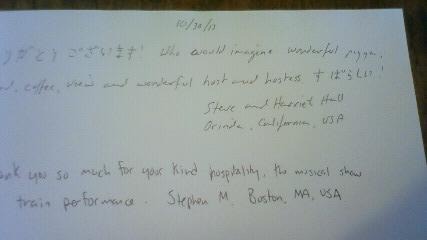 10/30/13
りがとう ございます! Who would imagine wonderful pizza,
coffee, views and wonderful host and hostess すばらしい!
Steve and Harriet Hall
Orinda, California, USA
ank you so much for your kind hospitality, the musical show
train performance. Stephen M. Boston, MA, USA